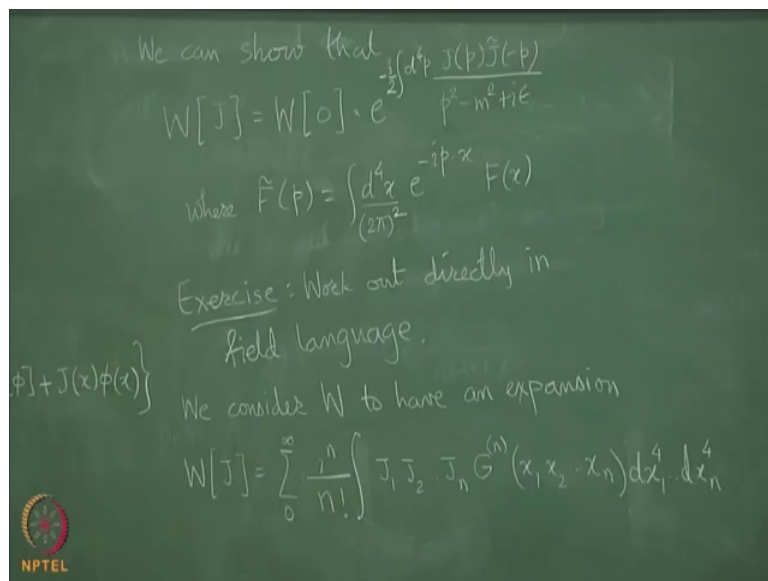 We can show that
W[J] = W[0] · e^{-\frac{i}{2}\int d^4p \frac{J(p)\tilde{J}(-p)}{p^2 - m^2 + iϵ}}
where F̃(p) = ∫ \frac{d^4x}{(2π)^2} e^{-ip·x} F(x)
Exercise : Work out directly in
field language.
ϕ] + J(x)ϕ(x)}
We consider W to have an expansion
W[J] = \sum_{0}^{∞} \frac{i^n}{n!} ∫ J_1 J_2 .. J_n G^{(n)}(x_1 x_2 .. x_n) dx_1^4 .. dx_n^4
NPTEL